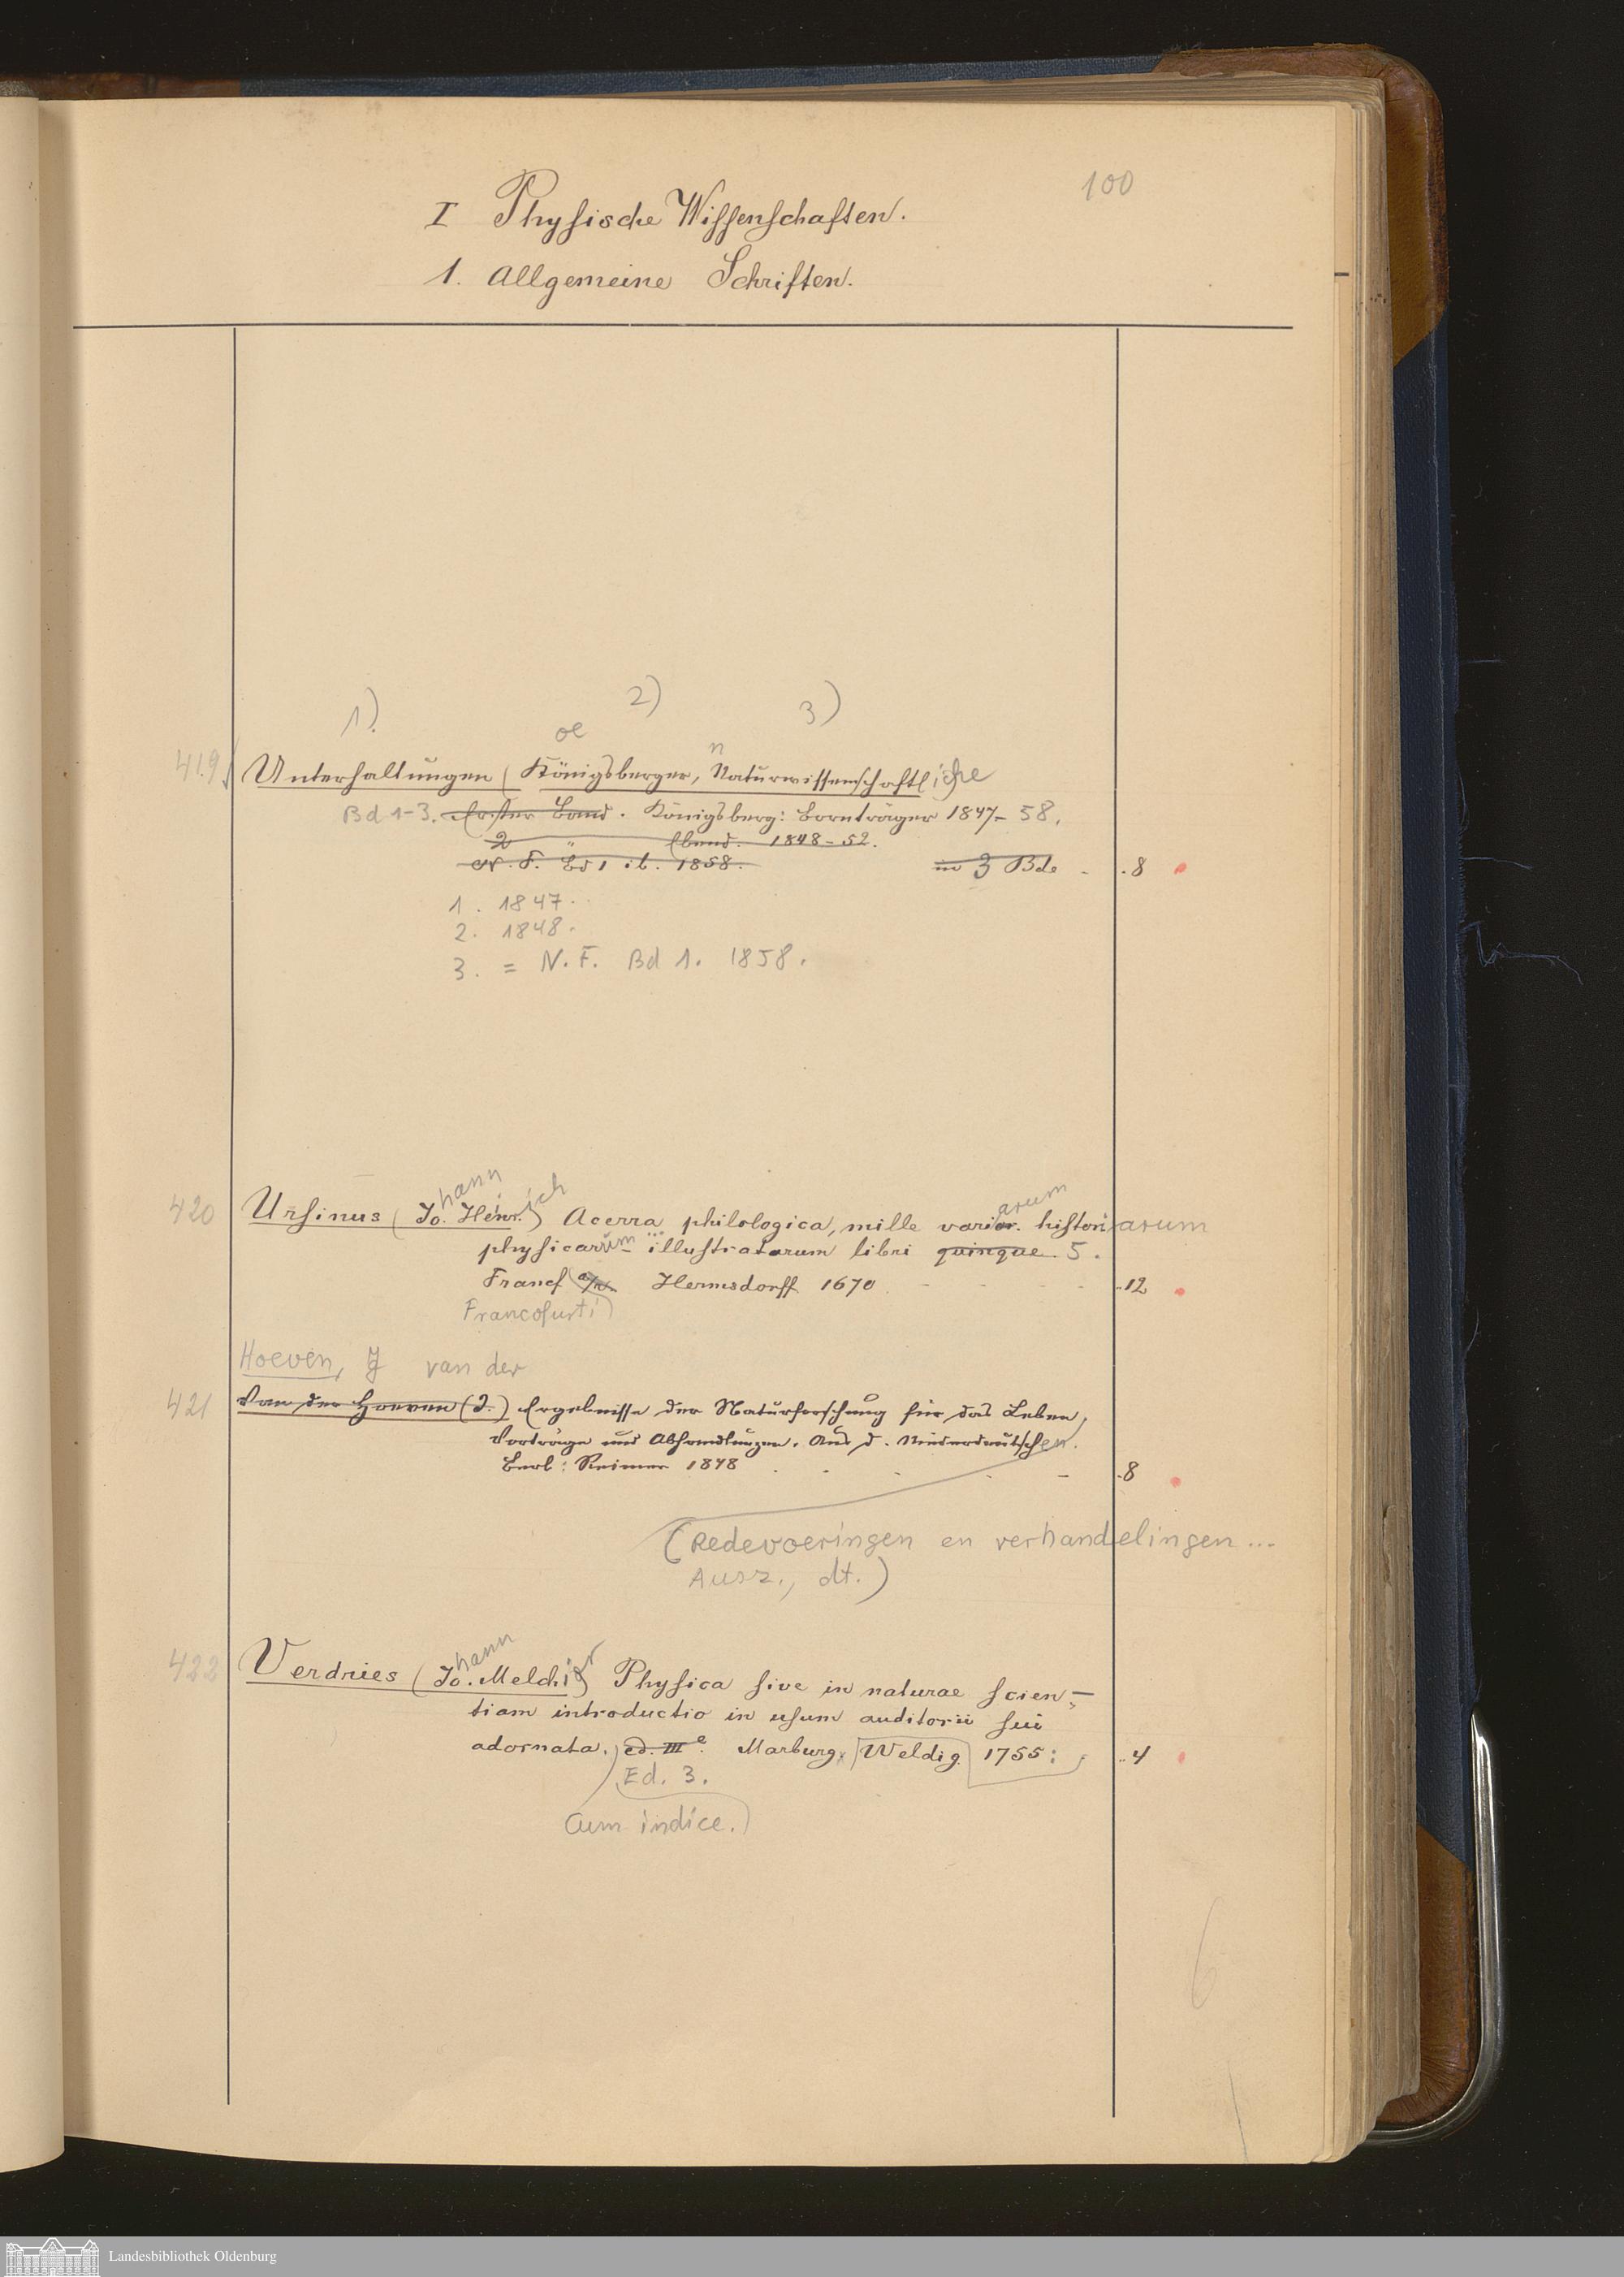 100
I Physische Wissenschaften.
1. Allgemeine Schriften.
1) 2) 3)
oe n
419 Unterhaltungen (Königsberger, Naturwissenschaftliche
Bd 1-3. Erster Band. Königsberg: Bornträger 1847-58.
2 " Ebend. 1848-52.
N. F. Bd 1 ib. 1858. in 3 Bde .8
1. 1847.
2. 1848.
3. = N. F. Bd 1. 1858.
420 Ursinus (Johann Heinrich) Acerra philologica, mille variarum historiarum
physicarum ... illustratarum libri quinque 5.
Francf a/M. Hermsdorff 1670 ..12
Francofurti)
Hoeven, J van der
421 Van der Hoeven (J.) Ergebnisse der Naturforschung für das Leben,
Vorträge und Abhandlungen. Aus d. Niederdeutschen.
Berl: Reimer 1848 .8
(Redevoeringen en verhandelingen ...
Ausz., dt.)
422 Verdries (Johann Melchior) Physica sive in naturae scien-
tiam introductio in usum auditorii sui
adornata. ed. IIIe. Marburg, Weldig 1755: ..4
Ed. 3.
Cum indice.)
6
Landesbibliothek Oldenburg